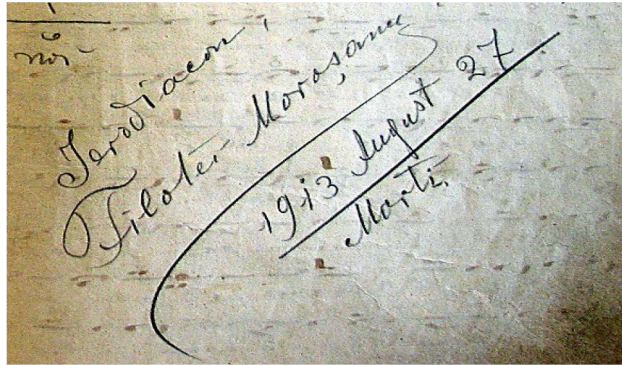 noi.
Ierodiacon,
Filotei Moroșanu
1913 August 27
Marți.